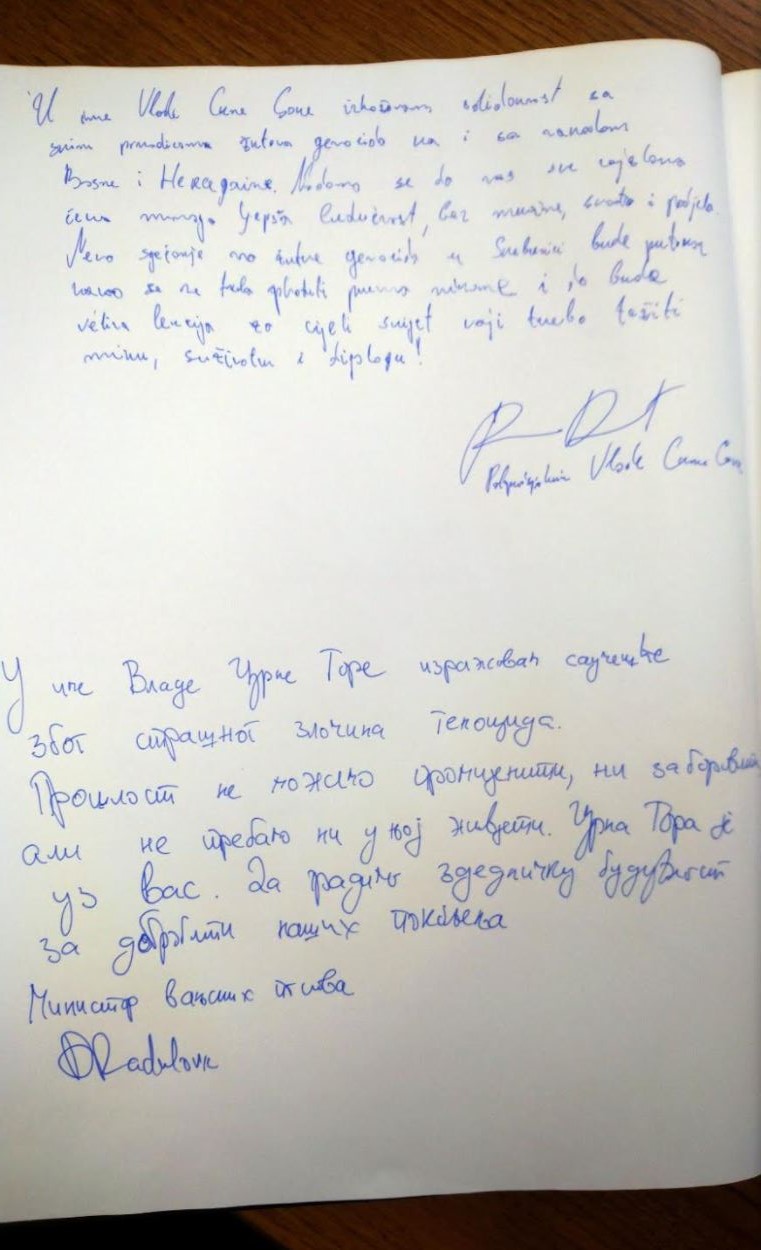 U ime Vlade Crne Gore izražavam solidarnost sa
svim porodicama žrtava genocida i sa narodom
Bosne i Hercegovine. Nadamo se da nas sve zajedno
čeka mnogo ljepša budućnost, bez mržnje, svađa i podjela.
Neka sjećanje na žrtve genocida u Srebrenici bude putokaz
kako se ne treba ophoditi prema nikome i da bude
velika lekcija za cijeli svijet koji treba težiti
miru, suživotu i dijalogu!
Vlade Crne Gore
У име Владе Црне Горе изражавам саучешће
због страшног злочина геноцида.
Прошлост не можемо промијенити, ни заборавити,
али не требамо ни у њој живјети. Црна Гора је
уз вас. Да градимо заједничку будућност
за добробит наших покољења
Министар вањских послова
DRadulović